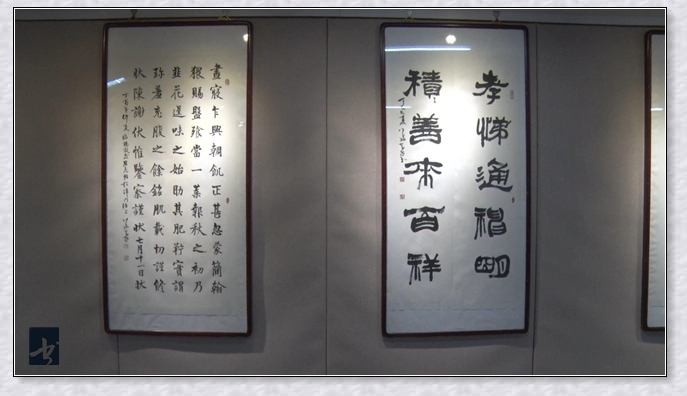 孝悌通神明
積善來百祥
晝寢乍興朝飢正甚忽蒙簡翰
猥賜盤飧當一葉報秋之初乃
韭花逞味之始助其肥羜實謂
珍羞充腹之餘銘肌載切謹修
狀陳謝伏惟鑒察謹狀七月十一日狀